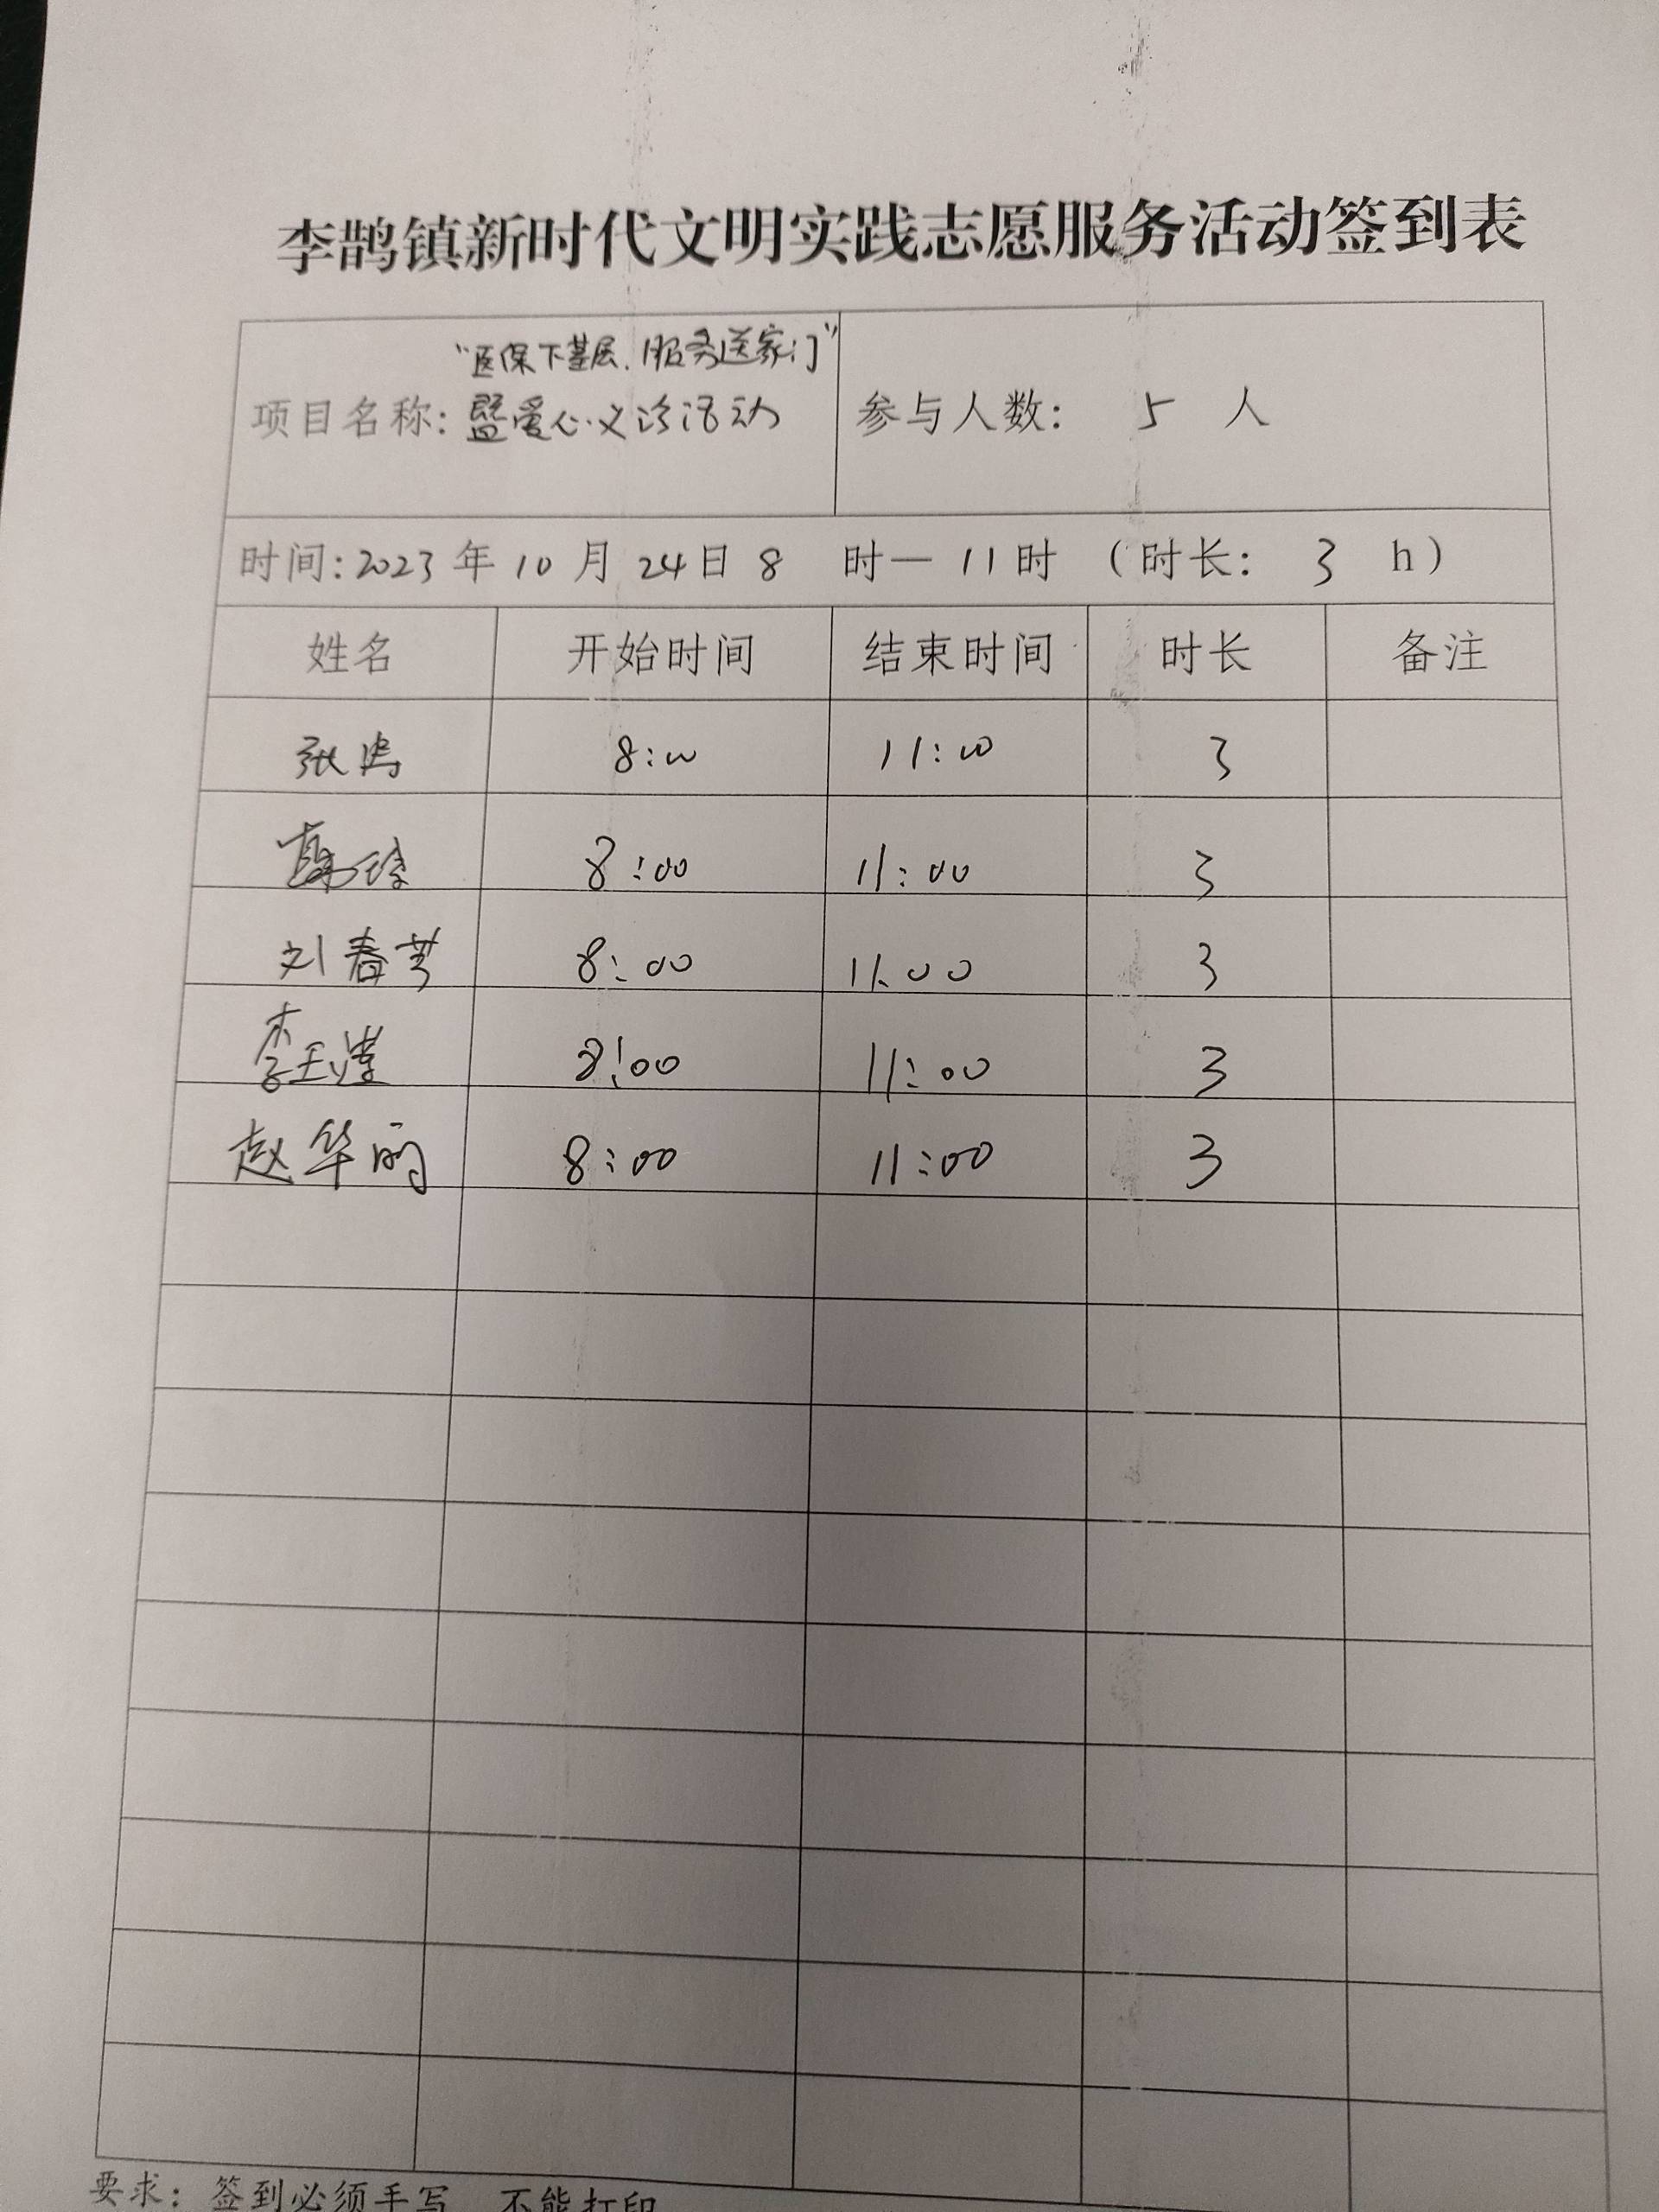 李鹊镇新时代文明实践志愿服务活动签到表
“医保下基层.服务送家门”
项目名称: 暨爱心义诊活动 参与人数: 5 人
时间: 2023 年 10 月 24 日 8 时 — 11 时 (时长: 3 h)
姓名 开始时间 结束时间 时长 备注
张 8:00 11:00 3
8:00 11:00 3
刘春芳 8:00 11:00 3
李玉 8:00 11:00 3
赵华丽 8:00 11:00 3
要求: 签到必须手写 不能打印